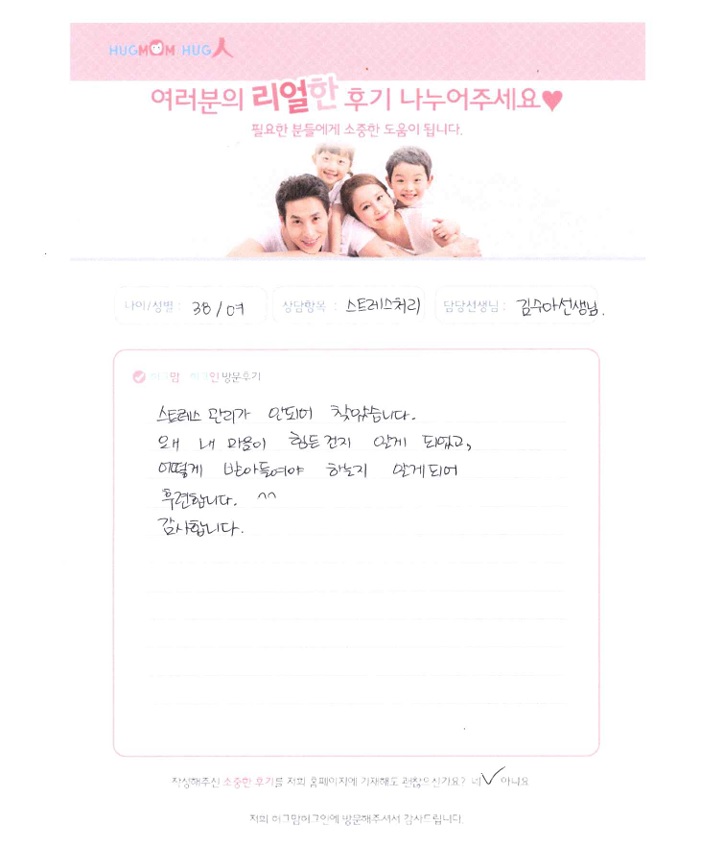 HUGMOM HUG人
여러분의 리얼한 후기 나누어주세요♥
필요한 분들에게 소중한 도움이 됩니다.
나이/성별 : 38 / 여 상담항목 : 스트레스처리 담당선생님 : 김수아선생님.
허그맘 허그인 방문후기
스트레스 관리가 안되어 찾았습니다.
왜 내 마음이 힘든건지 알게 되었고,
어떻게 받아들여야 하는지 알게되어
후련합니다. ^^
감사합니다.
작성해주신 소중한 후기를 저희 홈페이지에 기재해도 괜찮으신가요? 네 ✓ 아니요
저희 허그맘허그인에 방문해주셔서 감사드립니다.